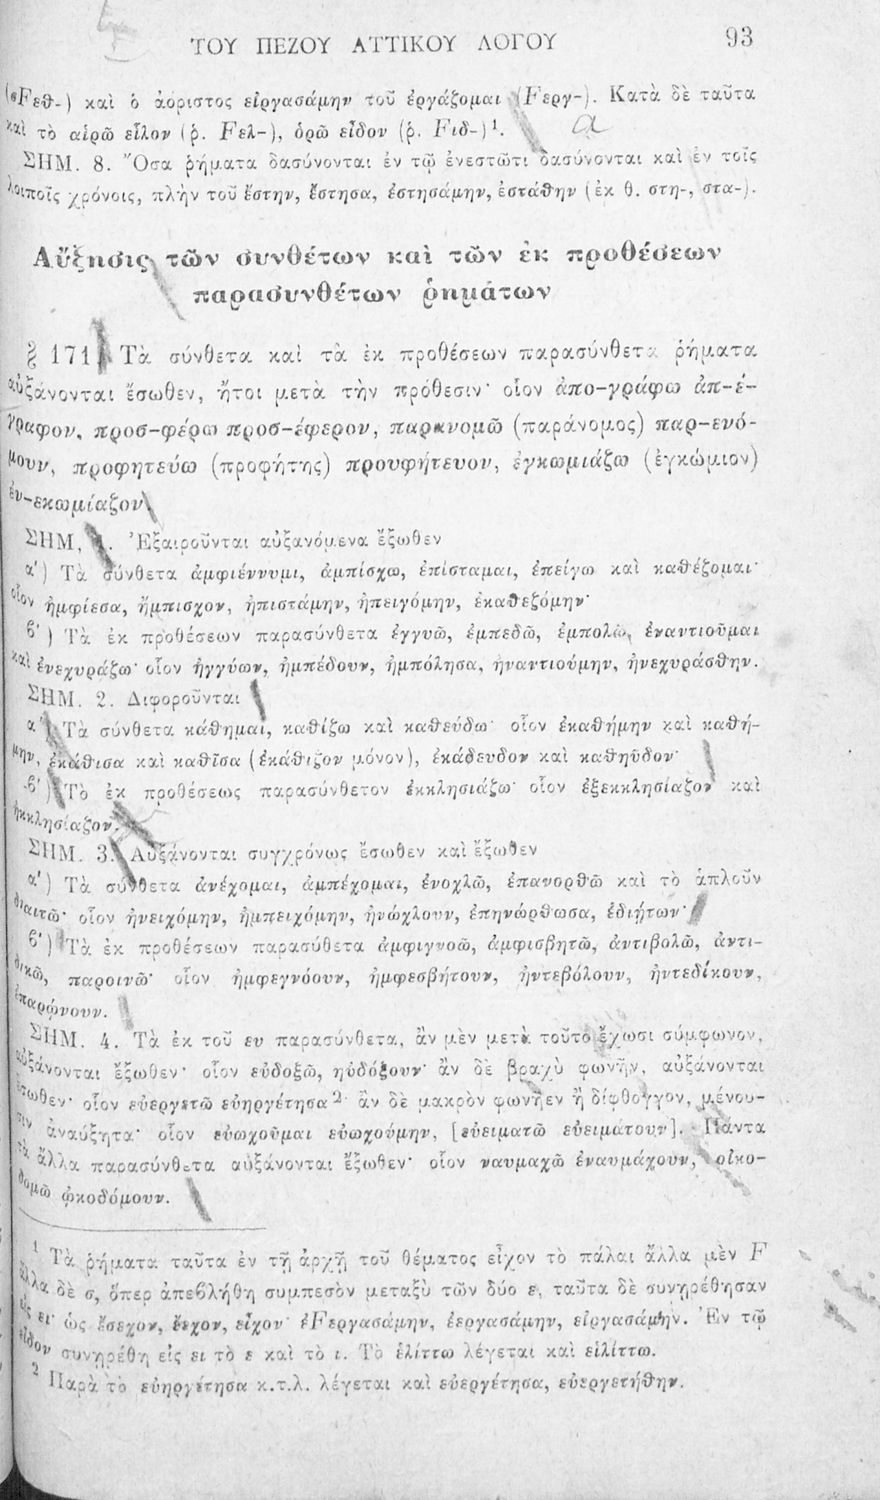 ΤΟΥ ΠΕΖΟΥ ΑΤΤΙΚΟΥ ΛΟΓΟΥ 93
(σFεθ-) καὶ ὁ ἀόριστος εἰργασάμην τοῦ ἐργάζομαι (Fεργ-). Κατὰ δὲ ταῦτα
καὶ τὸ αἱρῶ εἷλον (ῥ. Fελ-), ὁρῶ εἶδον (ῥ. Fιδ-)¹.
ΣΗΜ. 8. Ὅσα ῥήματα δασύνονται ἐν τῷ ἐνεστῶτι δασύνονται καὶ ἐν τοῖς
λοιποῖς χρόνοις, πλὴν τοῦ ἔστην, ἔστησα, ἐστησάμην, ἐστάθην (ἐκ θ. στη-, στα-).
Αὔξησις τῶν συνθέτων καὶ τῶν ἐκ προθέσεων
παρασυνθέτων ῥημάτων
§ 171 Τὰ σύνθετα καὶ τὰ ἐκ προθέσεων παρασύνθετα ῥήματα
αὐξάνονται ἔσωθεν, ἤτοι μετὰ τὴν πρόθεσιν· οἷον ἀπο-γράφω ἀπ-έ-
γραφον, προσ-φέρω προσ-έφερον, παρανομῶ (παράνομος) παρ-ενό-
μουν, προφητεύω (προφήτης) προυφήτευον, ἐγκωμιάζω (ἐγκώμιον)
ἐν-εκωμίαζον
ΣΗΜ. 1. Ἐξαιροῦνται αὐξανόμενα ἔξωθεν
α') Τὰ σύνθετα ἀμφιέννυμι, ἀμπίσχω, ἐπίσταμαι, ἐπείγω καὶ καθέζομαι·
οἷον ἠμφίεσα, ἤμπισχον, ἠπιστάμην, ἠπειγόμην, ἐκαθεζόμην·
β') Τὰ ἐκ προθέσεων παρασύνθετα ἐγγυῶ, ἐμπεδῶ, ἐμπολῶ, ἐναντιοῦμαι
καὶ ἐνεχυράζω· οἷον ἠγγύων, ἠμπέδουν, ἠμπόλησα, ἠναντιούμην, ἠνεχυράσθην.
ΣΗΜ. 2. Διφοροῦνται
α') Τὰ σύνθετα κάθημαι, καθίζω καὶ καθεύδω· οἷον ἐκαθήμην καὶ καθή-
μην, ἐκάθισα καὶ καθῖσα (ἐκάθιζον μόνον), ἐκάθευδον καὶ καθηῦδον·
β') Τὸ ἐκ προθέσεως παρασύνθετον ἐκκλησιάζω· οἷον ἐξεκκλησίαζον καὶ
ἠκκλησίαζον.
ΣΗΜ. 3. Αὐξάνονται συγχρόνως ἔσωθεν καὶ ἔξωθεν
α') Τὰ σύνθετα ἀνέχομαι, ἀμπέχομαι, ἐνοχλῶ, ἐπανορθῶ καὶ τὸ ἁπλοῦν
διαιτῶ· οἷον ἠνειχόμην, ἠμπειχόμην, ἠνώχλουν, ἐπηνώρθωσα, ἐδιῄτων·
β') Τὰ ἐκ προθέσεων παρασύθετα ἀμφιγνοῶ, ἀμφισβητῶ, ἀντιβολῶ, ἀντι-
δικῶ, παροινῶ· οἷον ἠμφεγνόουν, ἠμφεσβήτουν, ἠντεβόλουν, ἠντεδίκουν,
ἐπαρῴνουν.
ΣΗΜ. 4. Τὰ ἐκ τοῦ ευ παρασύνθετα, ἂν μὲν μετὰ τοῦτο ἔχωσι σύμφωνον,
αὐξάνονται ἔξωθεν· οἷον εὐδοξῶ, ηὐδόξουν· ἂν δὲ βραχὺ φωνῆεν, αὐξάνονται
ἔσωθεν· οἷον εὐεργετῶ εὐηργέτησα² ἂν δὲ μακρὸν φωνῆεν ἢ δίφθογγον, μένου-
σιν ἀναύξητα· οἷον εὐωχοῦμαι εὐωχούμην, [εὐειματῶ εὐειμάτουν]. Πάντα
τὰ ἄλλα παρασύνθετα αὐξάνονται ἔξωθεν· οἷον ναυμαχῶ ἐναυμάχουν, οἰκο-
δομῶ ᾠκοδόμουν.
¹ Τὰ ῥήματα ταῦτα ἐν τῇ ἀρχῇ τοῦ θέματος εἶχον τὸ πάλαι ἄλλα μὲν F
ἄλλα δὲ σ, ὅπερ ἀπεβλήθη συμπεσὸν μεταξὺ τῶν δύο ε, ταῦτα δὲ συνῃρέθησαν
εἰς ει· ὡς ἔσεχον, ἔεχον, εἶχον· ἐFεργασάμην, ἐεργασάμην, εἰργασάμην. Ἐν τῷ
εἶδον συνῃρέθη εἰς ει τὸ ε καὶ τὸ ι. Τὸ ἑλίττω λέγεται καὶ εἱλίττω.
² Παρὰ τὸ εὐηργέτησα κ.τ.λ. λέγεται καὶ εὐεργέτησα, εὐεργετήθην.